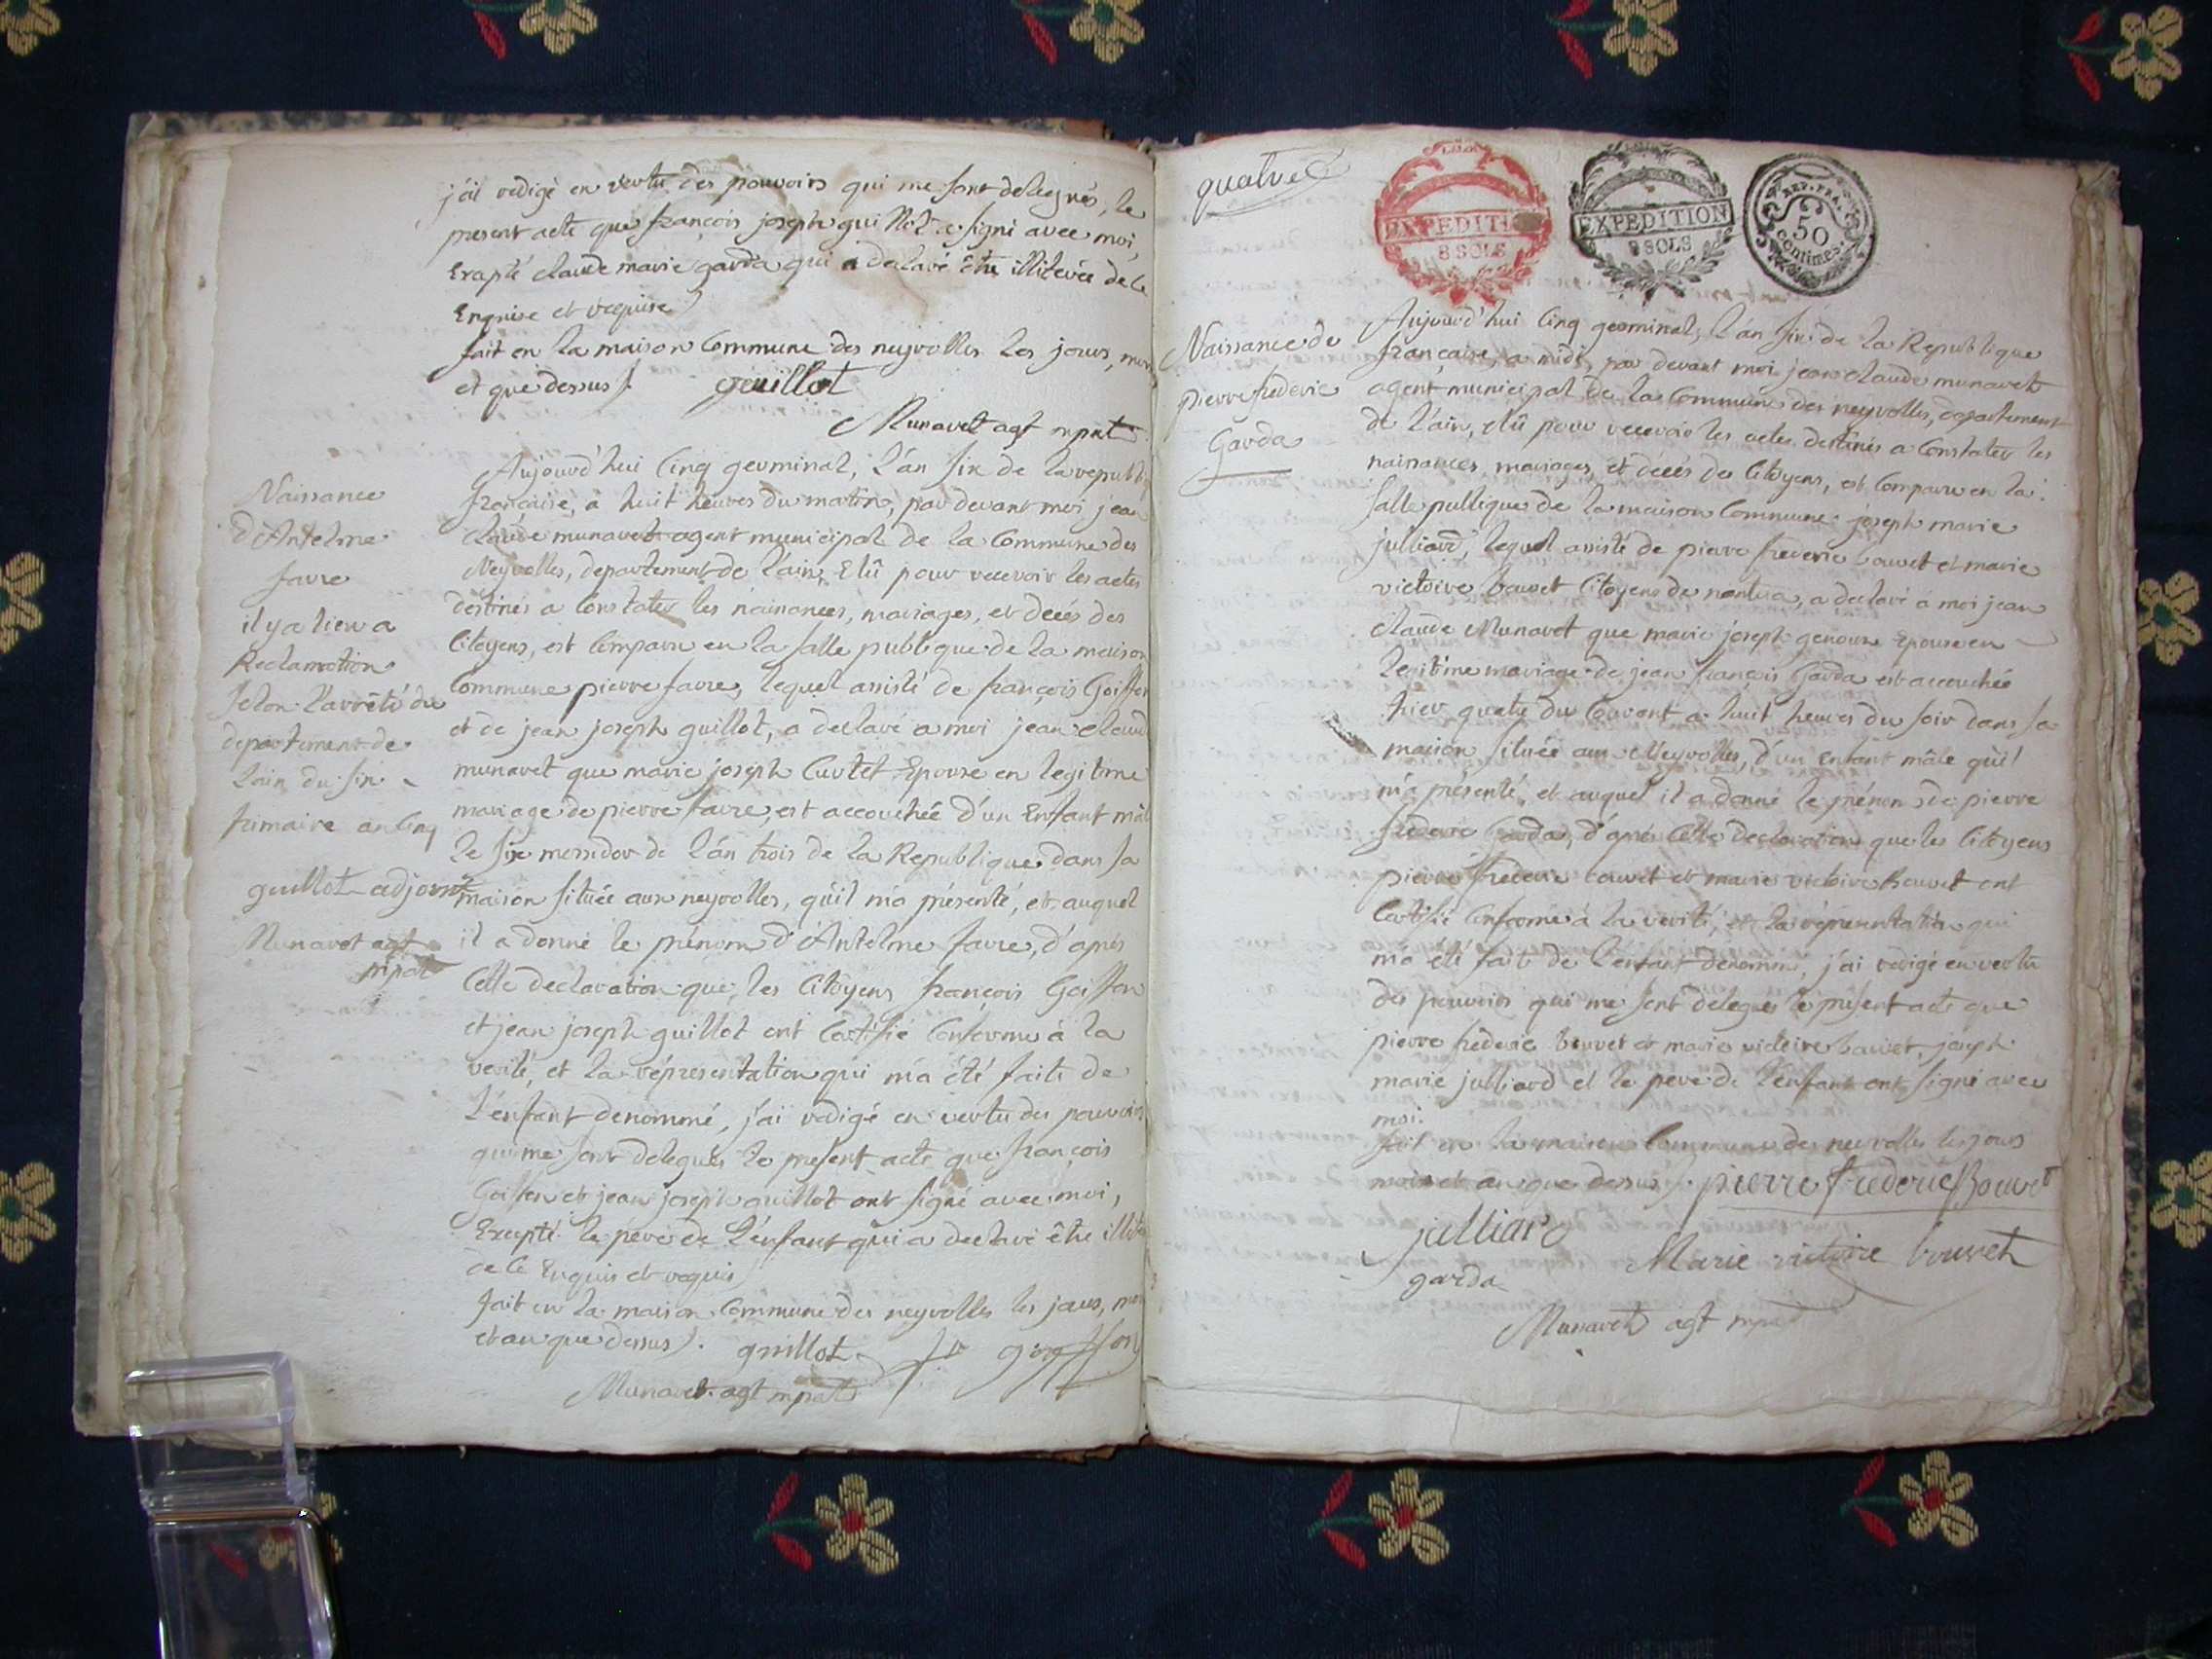 j'ai redigé en vertu des pouvoirs qui me sont delegués, le
present acte que françois joseph guillot a signé avec moi,
Excepté claude marie garda qui a declaré être illiterée de ce
Enquise et requise
fait en la maison Commune des neyrolles les jours, mois
et que dessus). guillot
Munavet agt mpal
Naissance
d'Antelme
favre
il y a lieu a
Reclamation
Selon l'arrêté du
departement de
l'ain du six
frimaire an Cinq
guillot adjoint
Munavet agt
mpal
Aujourd'hui Cinq germinal, l'an six de la republi
française, à huit heures du matin, par devant moi jean
claude munavet agent municipal de la Commune des
Neyrolles, departement de l'ain, Elû pour recevoir les actes
destinés a Constater les naissances, mariages, et decés des
Citoyens, est Comparu en la salle publique de la maison
Commune pierre favre, lequel assisté de françois Goiffon
et de jean joseph guillot, a declaré a moi jean claude
munavet que marie joseph Curtet Epouse en legitime
mariage de pierre favre, est accouchée d'un Enfant mâle
le six messidor de l'an trois de la Republique dans sa
maison située aux neyrolles, qu'il m'a présenté, et auquel
il a donné le prénom d'Antelme favre, d'aprés
Cette declaration que les Citoyens françois Goiffon
et jean joseph guillot ont Certifié Conforme à la
verité, et la répresentation qui m'a été faite de
l'enfant denommé, j'ai redigé en vertu des pouvoirs
qui me sont delegués le present acte que françois
Goiffon et jean joseph guillot ont signé avec moi,
Excepté le pere de l'enfant qui a declaré être illite
de ce Enquis et requis
fait en la maison Commune des neyrolles les jours, mois
et an que dessus). guillot fr goiffon
Munavet agt mpal
quatre
EXPEDITION
8 SOLS
EXPEDITION
8 SOLS
REP. FRA.
50
centimes.
Naissance de
pierre frederic
Garda
Aujourd'hui Cinq germinal, l'an six de la Republique
française, a midi, par devant moi jean claude munavet
agent municipal de la Commune des neyrolles, departement
de l'ain, élû pour recevoir les actes destinés a Constater les
naissances, mariages, et décés des Citoyens, est Comparu en la
salle publique de la maison Commune joseph marie
julliard, lequel assisté de pierre frederic bouvet et marie
victoire bouvet Citoyens de nantua, a declaré a moi jean
claude Munavet que marie joseph genoux Epouse en
legitime mariage de jean françois Garda est accouchée
hier quatre du Courant a huit heures du soir dans sa
maison située aux Neyrolles, d'un Enfant mâle qu'il
m'a présenté, et auquel il a donné le prénom de pierre
frederic Garda, d'aprés Cette declaration que les Citoyens
pierre frederic bouvet et marie victoire bouvet ont
Certifié Conforme à la verité, et la répresentation qui
m'a été faite de l'enfant denommé, j'ai redigé en vertu
des pouvoirs qui me sont delegués le present acte que
pierre frederic bouvet et marie victoire bouvet, joseph
marie julliard et le pere de l'enfant ont signé avec
moi.
fait en la maison Commune des neyrolles les jours
mois et an que dessus). pierre frederic Bouvet
julliard
Marie victoire bouvet
garda
Munavet agt mpal